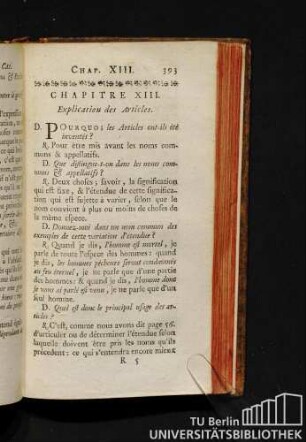 CHAP. XIII. 393
CHAPITRE XIII.
Explication des Articles.
D. POURQUOI les Articles ont-ils été
inventés ?
R. Pour être mis avant les noms com-
muns & appellatifs.
D. Que distingue-t-on dans les noms com-
muns & appellatifs ?
R. Deux choses ; savoir, la signification
qui est fixe, & l'étendue de cette significa-
tion qui est sujette à varier, selon que le
nom convient à plus ou moins de choses de
la même espece.
D. Donnez-moi dans un nom commun des
exemples de cette variation d'étendue ?
R. Quand je dis, l'homme est mortel, je
parle de toute l'espece des hommes : quand
je dis, les hommes pécheurs seront condamnés
au feu éternel, je ne parle que d'une partie
des hommes : & quand je dis, l'homme dont
je vous ai parlé est venu, je ne parle que d'un
seul homme.
D. Quel est donc le principal usage des ar-
ticles ?
R. C'est, comme nous avons dit page 56.
d'articuler ou de déterminer l'étendue selon
laquelle doivent être pris les noms qu'ils
précedent : ce qui s'entendra encore mieux
R 5
TU Berlin
UNIVERSITÄTSBIBLIOTHEK